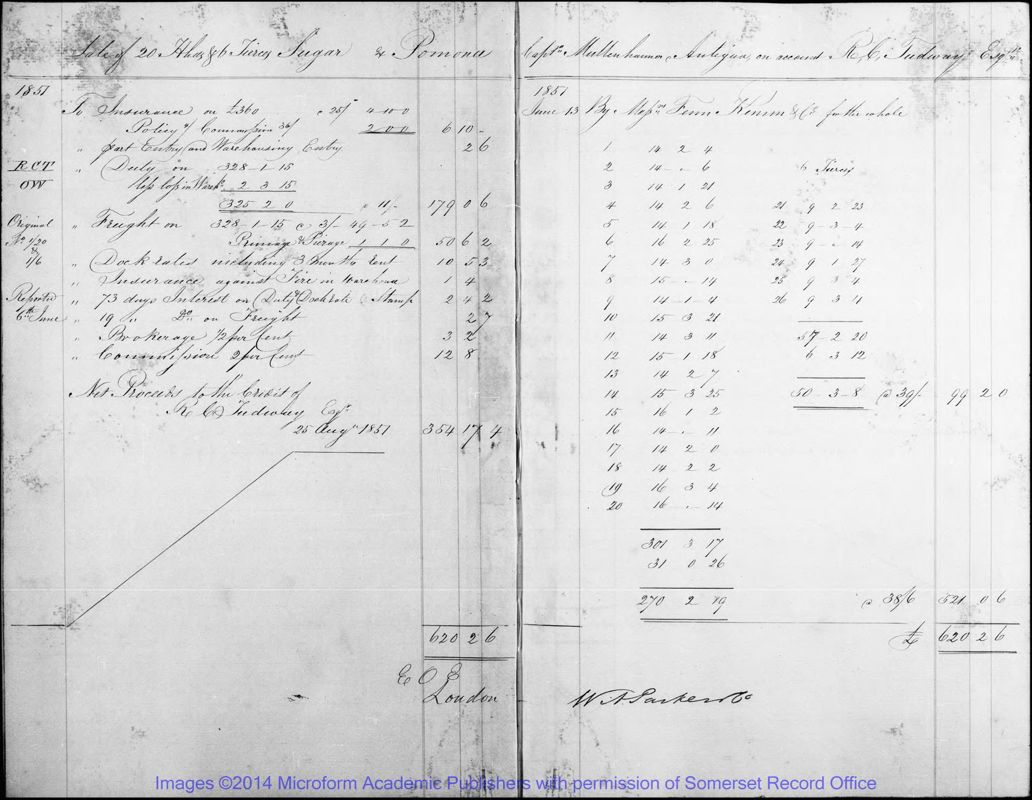 Sale of 20 Hhds & 6 Tierces Sugar & Pomona
1851
To Insurance on £360 @ 25/ 4 10 0
Policy & Commission 3o/ 2 0 0 6 10 -
" part Entry and Warehousing Entry 2 6
RCT
OW
" Duty on 328 - 1 - 15
less loss in Wareh. 2 3 15
325 2 0 @ 11/- 179 0 6
Original
No 1/20
&
1/6
" Freight on 328-1-15 @ 3/- 49-5 2
Priming & Pierage 1 1 0 50 6 2
" Dock rates including 3 months rent 10 5 3
" Insurance against Fire in Warehouse 1 4
Reported
6th June
" 73 days Interest on Duty Dock rate & Stamp 2 4 2
" 19 " Do on Freight 2 7
" Brokerage 1/2 per Cent 3 2
" Commission 2 per Cent 12 8
Net Proceeds to the Credit of
R C Tudway Esqr
25 Augt 1851 354 17 4
620 2 6
E O E
London
Captn Antigua, on account R. C. Tudway Esqre
1851
June 13 By Messrs Fenn Kemm & Co for the whole
1 14 2 4
2 14 - 6 6 Tierces
3 14 1 21
4 14 2 6 21 9 2 23
5 14 1 18 22 9 - 3 - 4
6 16 2 25 23 9 - - 14
7 14 3 0 24 9 1 27
8 15 - - 14 25 9 3 4
9 14 - 1 - 4 26 9 3 4
10 15 3 21
11 14 3 11 57 2 20
12 15 1 18 6 3 12
13 14 2 7
14 15 3 25 50 - 3 - 8 @ 39/- 99 2 0
15 16 1 2
16 14 - 11
17 14 2 0
18 14 2 2
19 16 3 4
20 16 - - 14
301 3 17
31 0 26
270 2 19 @ 38/6 521 0 6
£ 620 2 6
Images ©2014 Microform Academic Publishers with permission of Somerset Record Office